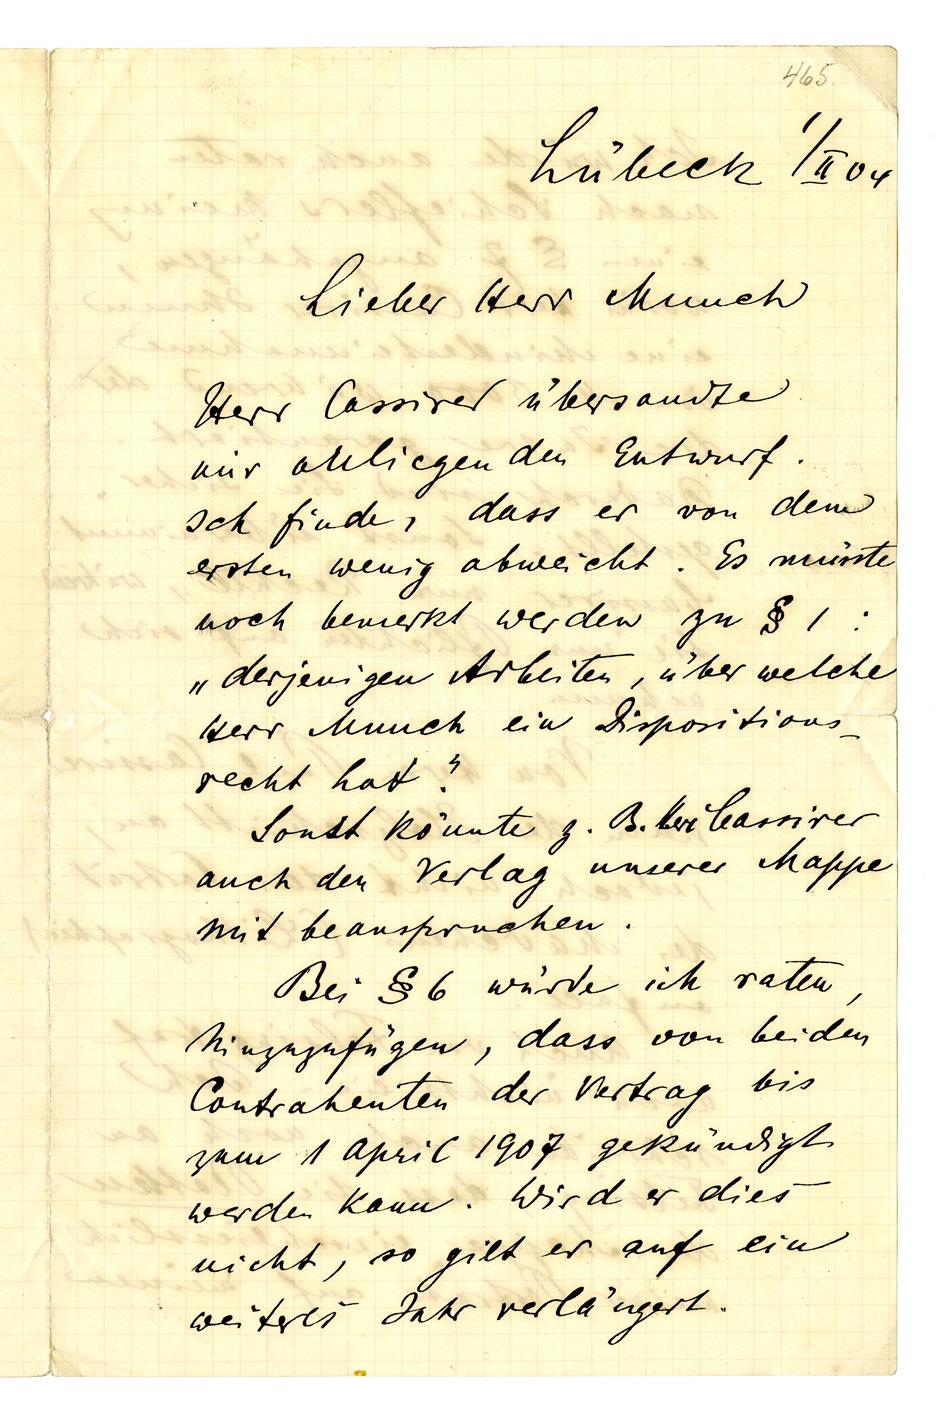 465.
Lübeck 1/II 04
Lieber Herr Munch
Herr Cassirer übersandte
mir anliegenden Entwurf.
Ich finde, dass er von dem
ersten wenig abweicht. Es müsste
noch bemerkt werden zu § 1 :
„derjenigen Arbeiten, über welche
Herr Munch ein Dispositions-
recht hat".
Sonst könnte z. B. Cassirer
auch den Verlag unserer Mappe
mit beanspruchen.
Bei § 6 würde ich raten,
hinzuzufügen, dass von beiden
Contrahenten der Vertrag bis
zum 1 April 1907 gekündigt
werden kann. Wird er dies
nicht, so gilt er auf ein
weiteres Jahr verlängert.